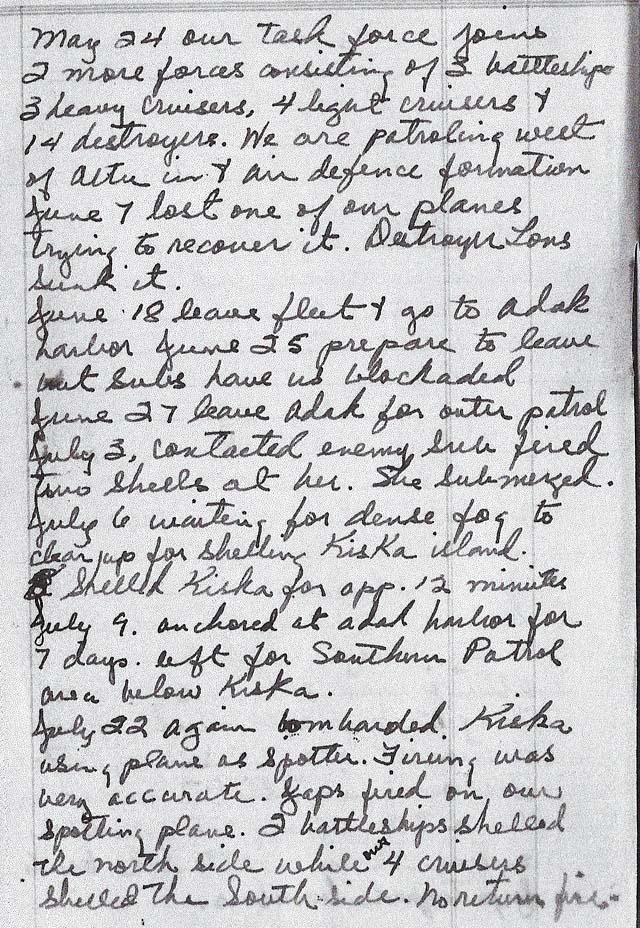 May 24 our task force joins
2 more forces consisting of 3 battleships
3 heavy cruisers, 4 light cruisers &
14 destroyers. We are patroling west
of Attu in & air defence formation
June 7 lost one of our planes
trying to recover it. Destroyer Lons
sunk it.
June 18 leave fleet & go to Adak
harbor June 25 prepare to leave
but subs have us blockaded
June 27 leave Adak for outer patrol
July 3, contacted enemy sub fired
two shells at her. She submerged.
July 6 waiting for dense fog to
clear up for shelling Kiska island.
Shelled Kiska for app. 12 minutes
July 9. anchored at adak harbor for
7 days. left for Southern Patrol
area below Kiska.
July 22 again bombarded Kiska
using plane as spotter. Firing was
very accurate. Japs fired on our
spotting plane. 2 battleships shelled
the north side while our 4 cruisers
shelled the South side. No return fire.